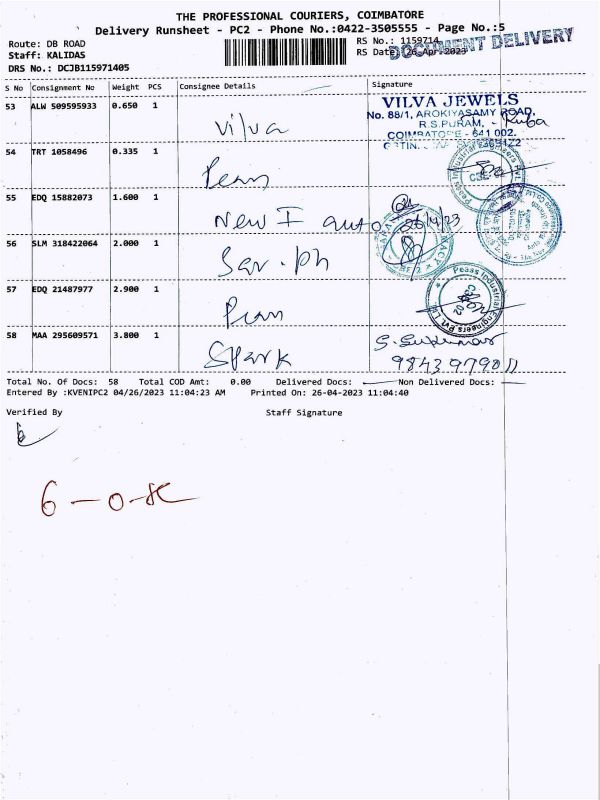 THE PROFESSIONAL COURIERS, COIMBATORE
Delivery Runsheet - PC2 - Phone No.:0422-3505555 - Page No.:5
Route: DB ROAD
RS No.: 1159714
DOCUMENT DELIVERY
Staff: KALIDAS
RS Date: 26-Apr-2023
DRS No.: DCJB115971405
S No Consignment No Weight PCS Consignee Details Signature
53 ALW 509595933 0.650 1 Vilva
VILVA JEWELS
No. 88/1, AROKIYASAMY ROAD,
R.S.PURAM,
COIMBATORE - 641 002.
54 TRT 1058496 0.335 1
55 EDQ 15882073 1.600 1 New I auto 26/4/23
56 SLM 318422064 2.000 1 Sar.Ph
57 EDQ 21487977 2.900 1
Peass Industrial Engineers Pvt. Ltd.
58 MAA 295609571 3.800 1 Spark
S. Sukumar
9843979011
Total No. Of Docs: 58 Total COD Amt: 0.00 Delivered Docs: Non Delivered Docs:
Entered By :KVENIPC2 04/26/2023 11:04:23 AM Printed On: 26-04-2023 11:04:40
Verified By Staff Signature
6 - 0 -